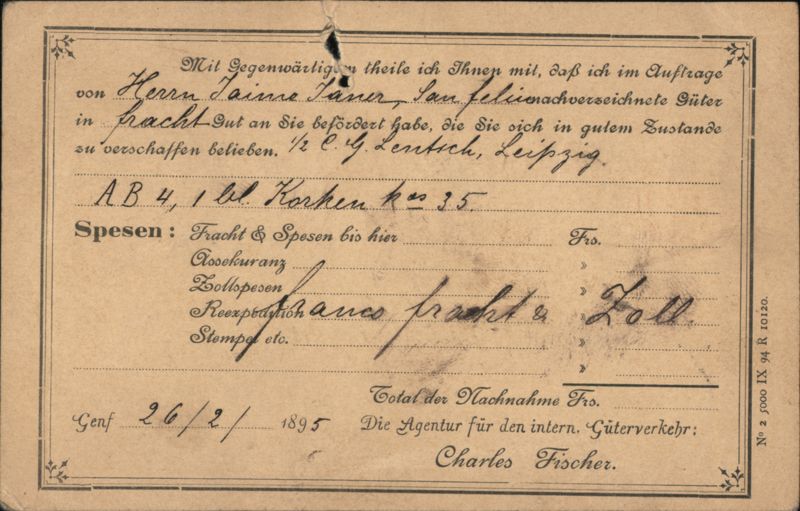 Mit Gegenwärtigem theile ich Ihnen mit, daß ich im Auftrage
von Herrn Jaime Janer, San feliu nachverzeichnete Güter
in fracht Gut an Sie befördert habe, die Sie sich in gutem Zustande
zu verschaffen belieben. ½ C. G. Lentsch, Leipzig.
AB 4, 1 bl. Korken kos 35.
Spesen: Fracht & Spesen bis hier Frs.
Assekuranz »
Zollspesen »
Reexpedition franco fracht & Zoll »
Stempel etc. »
»
Total der Nachnahme Frs.
Genf 26/2/ 1895 Die Agentur für den intern. Güterverkehr:
Charles Fischer.
Nº 2 5000 IX 94 R 10120.